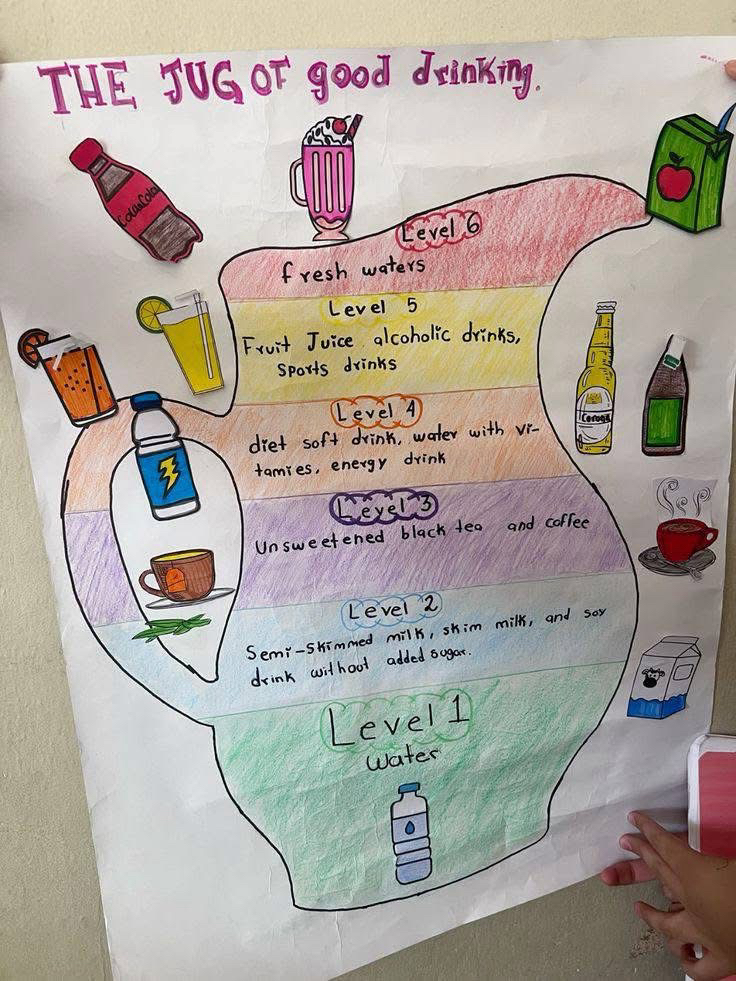 THE JUG OF good drinking.
Cola Cola
Level 6
fresh waters
Level 5
Fruit Juice alcoholic drinks,
Sports drinks
Level 4
diet soft drink, water with vi-
tamies, energy drink
Corona
Level 3
Unsweetened black tea and coffee
Level 2
Semi-skimmed milk, skim milk, and soy
drink without added sugar.
Level 1
Water